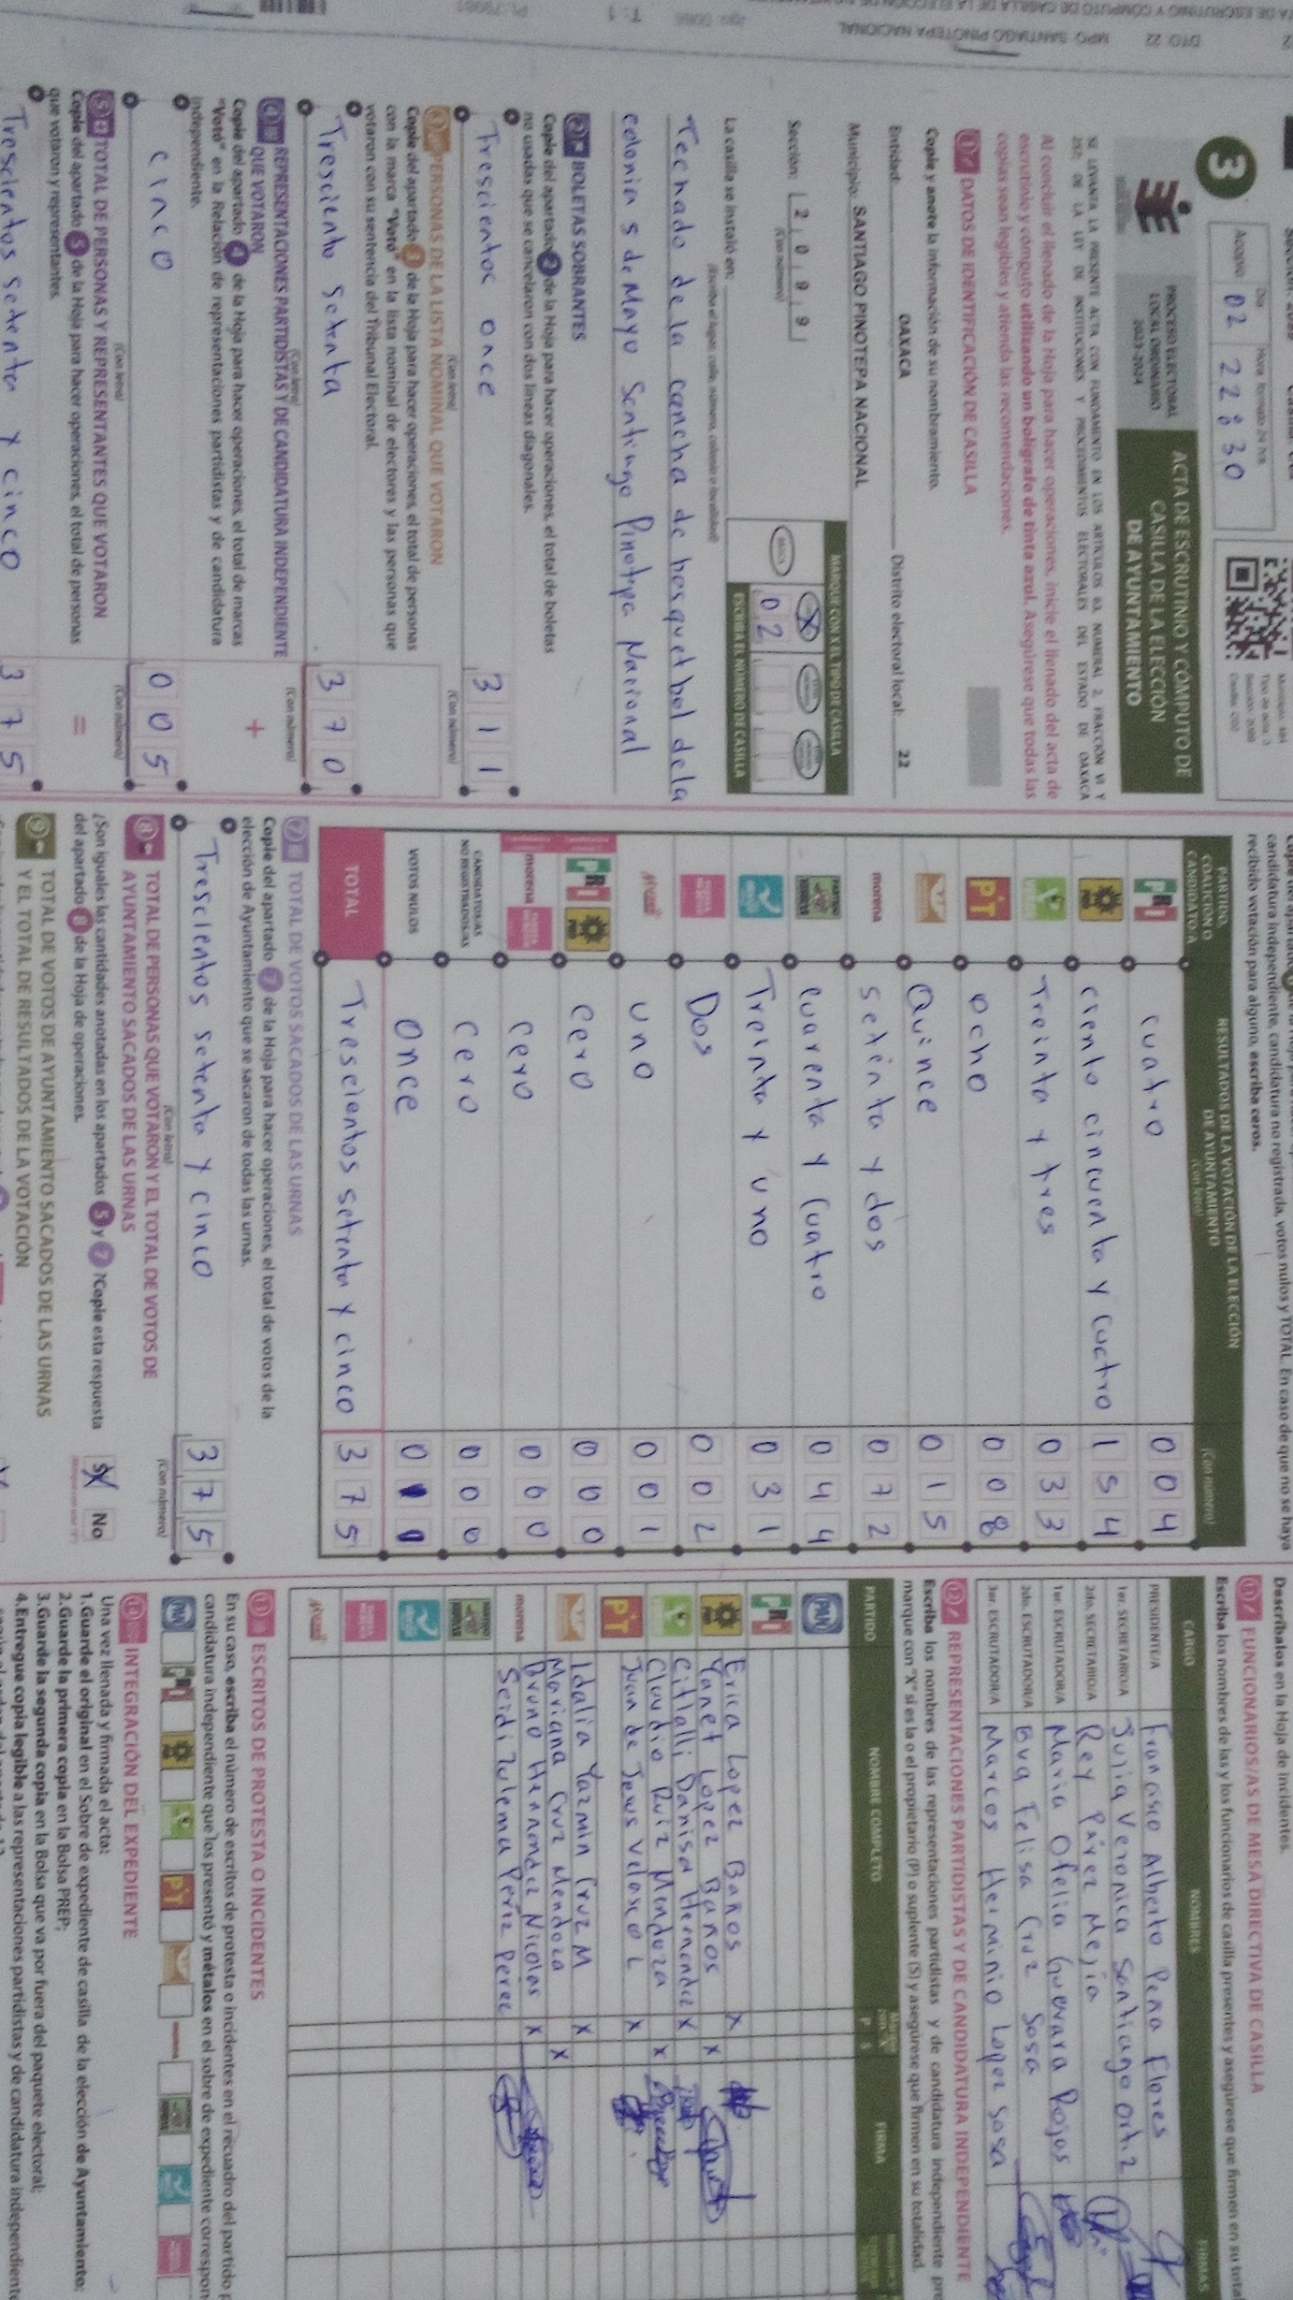 DTO: 22 MPO: SANTIAGO PINOTEPA NACIONAL
3
Acopio
Día
Hora formato 24 hrs
02 22:30
PROCESO ELECTORAL
LOCAL ORDINARIO
2023-2024
ACTA DE ESCRUTINIO Y CÓMPUTO DE
CASILLA DE LA ELECCIÓN
DE AYUNTAMIENTO
Al concluir el llenado de la Hoja para hacer operaciones, inicie el llenado del acta de
escrutinio y cómputo utilizando un bolígrafo de tinta azul. Asegúrese que todas las
copias sean legibles y atienda las recomendaciones.
1 DATOS DE IDENTIFICACIÓN DE CASILLA
Copie y anote la información de su nombramiento.
Entidad: OAXACA Distrito electoral local: 22
Municipio: SANTIAGO PINOTEPA NACIONAL
Sección: 2 0 9 9
(Con número)
MARQUE CON X EL TIPO DE CASILLA
X
02
ESCRIBA EL NÚMERO DE CASILLA
La casilla se instaló en:
Techado de la cancha de basquetbol de la
colonia 5 de Mayo Santiago Pinotepa Nacional
2 BOLETAS SOBRANTES
Copie del apartado 2 de la Hoja para hacer operaciones, el total de boletas
no usadas que se cancelaron con dos líneas diagonales.
Trescientos once 3 1 1
(Con letra) (Con número)
3 PERSONAS DE LA LISTA NOMINAL QUE VOTARON
Copie del apartado 3 de la Hoja para hacer operaciones, el total de personas
con la marca "Votó" en la lista nominal de electores y las personas que
votaron con su sentencia del Tribunal Electoral.
Tresciento setenta 3 7 0
(Con letra) (Con número)
4 REPRESENTACIONES PARTIDISTAS Y DE CANDIDATURA INDEPENDIENTE
QUE VOTARON +
Copie del apartado 4 de la Hoja para hacer operaciones, el total de marcas
"Votó" en la Relación de representaciones partidistas y de candidatura
independiente.
cinco 0 0 5
(Con letra) (Con número)
5 TOTAL DE PERSONAS Y REPRESENTANTES QUE VOTARON =
Copie del apartado 5 de la Hoja para hacer operaciones, el total de personas
que votaron y representantes.
Trescientos setenta y cinco 3 7 5
candidatura independiente, candidatura no registrada, votos nulos y TOTAL. En caso de que no se haya
recibido votación para alguno, escriba ceros.
PARTIDO,
COALICIÓN O
CANDIDATO/A
RESULTADOS DE LA VOTACIÓN DE LA ELECCIÓN
DE AYUNTAMIENTO
(Con letra) (Con número)
PRI cuatro 0 0 4
PRD ciento cincuenta y cuatro 1 5 4
Treinta y tres 0 3 3
PT ocho 0 0 8
Quince 0 1 5
morena setenta y dos 0 7 2
cuarenta y cuatro 0 4 4
Treinta y uno 0 3 1
Dos 0 0 2
uno 0 0 1
PRI PRD cero 0 0 0
morena cero 0 0 0
CANDIDATOS/AS
NO REGISTRADOS/AS cero 0 0 0
VOTOS NULOS once 0 1 1
TOTAL Trescientos setenta y cinco 3 7 5
7 TOTAL DE VOTOS SACADOS DE LAS URNAS
Copie del apartado 7 de la Hoja para hacer operaciones, el total de votos de la
elección de Ayuntamiento que se sacaron de todas las urnas.
Trescientos setenta y cinco 3 7 5
(Con letra) (Con número)
8 TOTAL DE PERSONAS QUE VOTARON Y EL TOTAL DE VOTOS DE
AYUNTAMIENTO SACADOS DE LAS URNAS
¿Son iguales las cantidades anotadas en los apartados 5 y 7? Copie esta respuesta
del apartado 8 de la Hoja de operaciones.
Sí X No
9 TOTAL DE VOTOS DE AYUNTAMIENTO SACADOS DE LAS URNAS
Y EL TOTAL DE RESULTADOS DE LA VOTACIÓN
Descríbalos en la Hoja de incidentes.
FUNCIONARIOS/AS DE MESA DIRECTIVA DE CASILLA
Escriba los nombres de las y los funcionarios de casilla presentes y asegúrese que firmen en su tota
CARGO NOMBRES FIRMAS
PRESIDENTE/A Francisco Alberto Pena Flores
1er. SECRETARIO/A Julia Veronica Santiago Ortiz
2do. SECRETARIO/A Rey Pérez Mejia
1er. ESCRUTADOR/A Maria Ofelia Guevara Rojas
2do. ESCRUTADOR/A Eva Felisa Cruz Sosa
3er. ESCRUTADOR/A Marcos Herminio Lopez Sosa
12 REPRESENTACIONES PARTIDISTAS Y DE CANDIDATURA INDEPENDIENTE
Escriba los nombres de las representaciones partidistas y de candidatura independiente pre
marque con "X" si es la o el propietario (P) o suplente (S) y asegúrese que firmen en su totalidad.
PARTIDO NOMBRE COMPLETO P S FIRMA
PAN
PRI
Erica Lopez Baños X
PRD Yanet Lopez Baños X
Citlalli Danisa Hernandez X
Claudio Ruiz Mendoza X
PT Juan de Jesus Velasco L X
Idalia Yazmin Cruz M X
Mariana Cruz Mendoza X
morena Bruno Hernandez Nicolas X
Seidi Zulema Pérez Perez
13 ESCRITOS DE PROTESTA O INCIDENTES
En su caso, escriba el número de escritos de protesta o incidentes en el recuadro del partido p
candidatura independiente que los presentó y métalos en el sobre de expediente correspon
PAN PRI PRD PT
INTEGRACIÓN DEL EXPEDIENTE
Una vez llenada y firmada el acta:
1.Guarde el original en el Sobre de expediente de casilla de la elección de Ayuntamiento;
2.Guarde la primera copia en la Bolsa PREP;
3.Guarde la segunda copia en la Bolsa que va por fuera del paquete electoral;
4.Entregue copia legible a las representaciones partidistas y de candidatura independiente